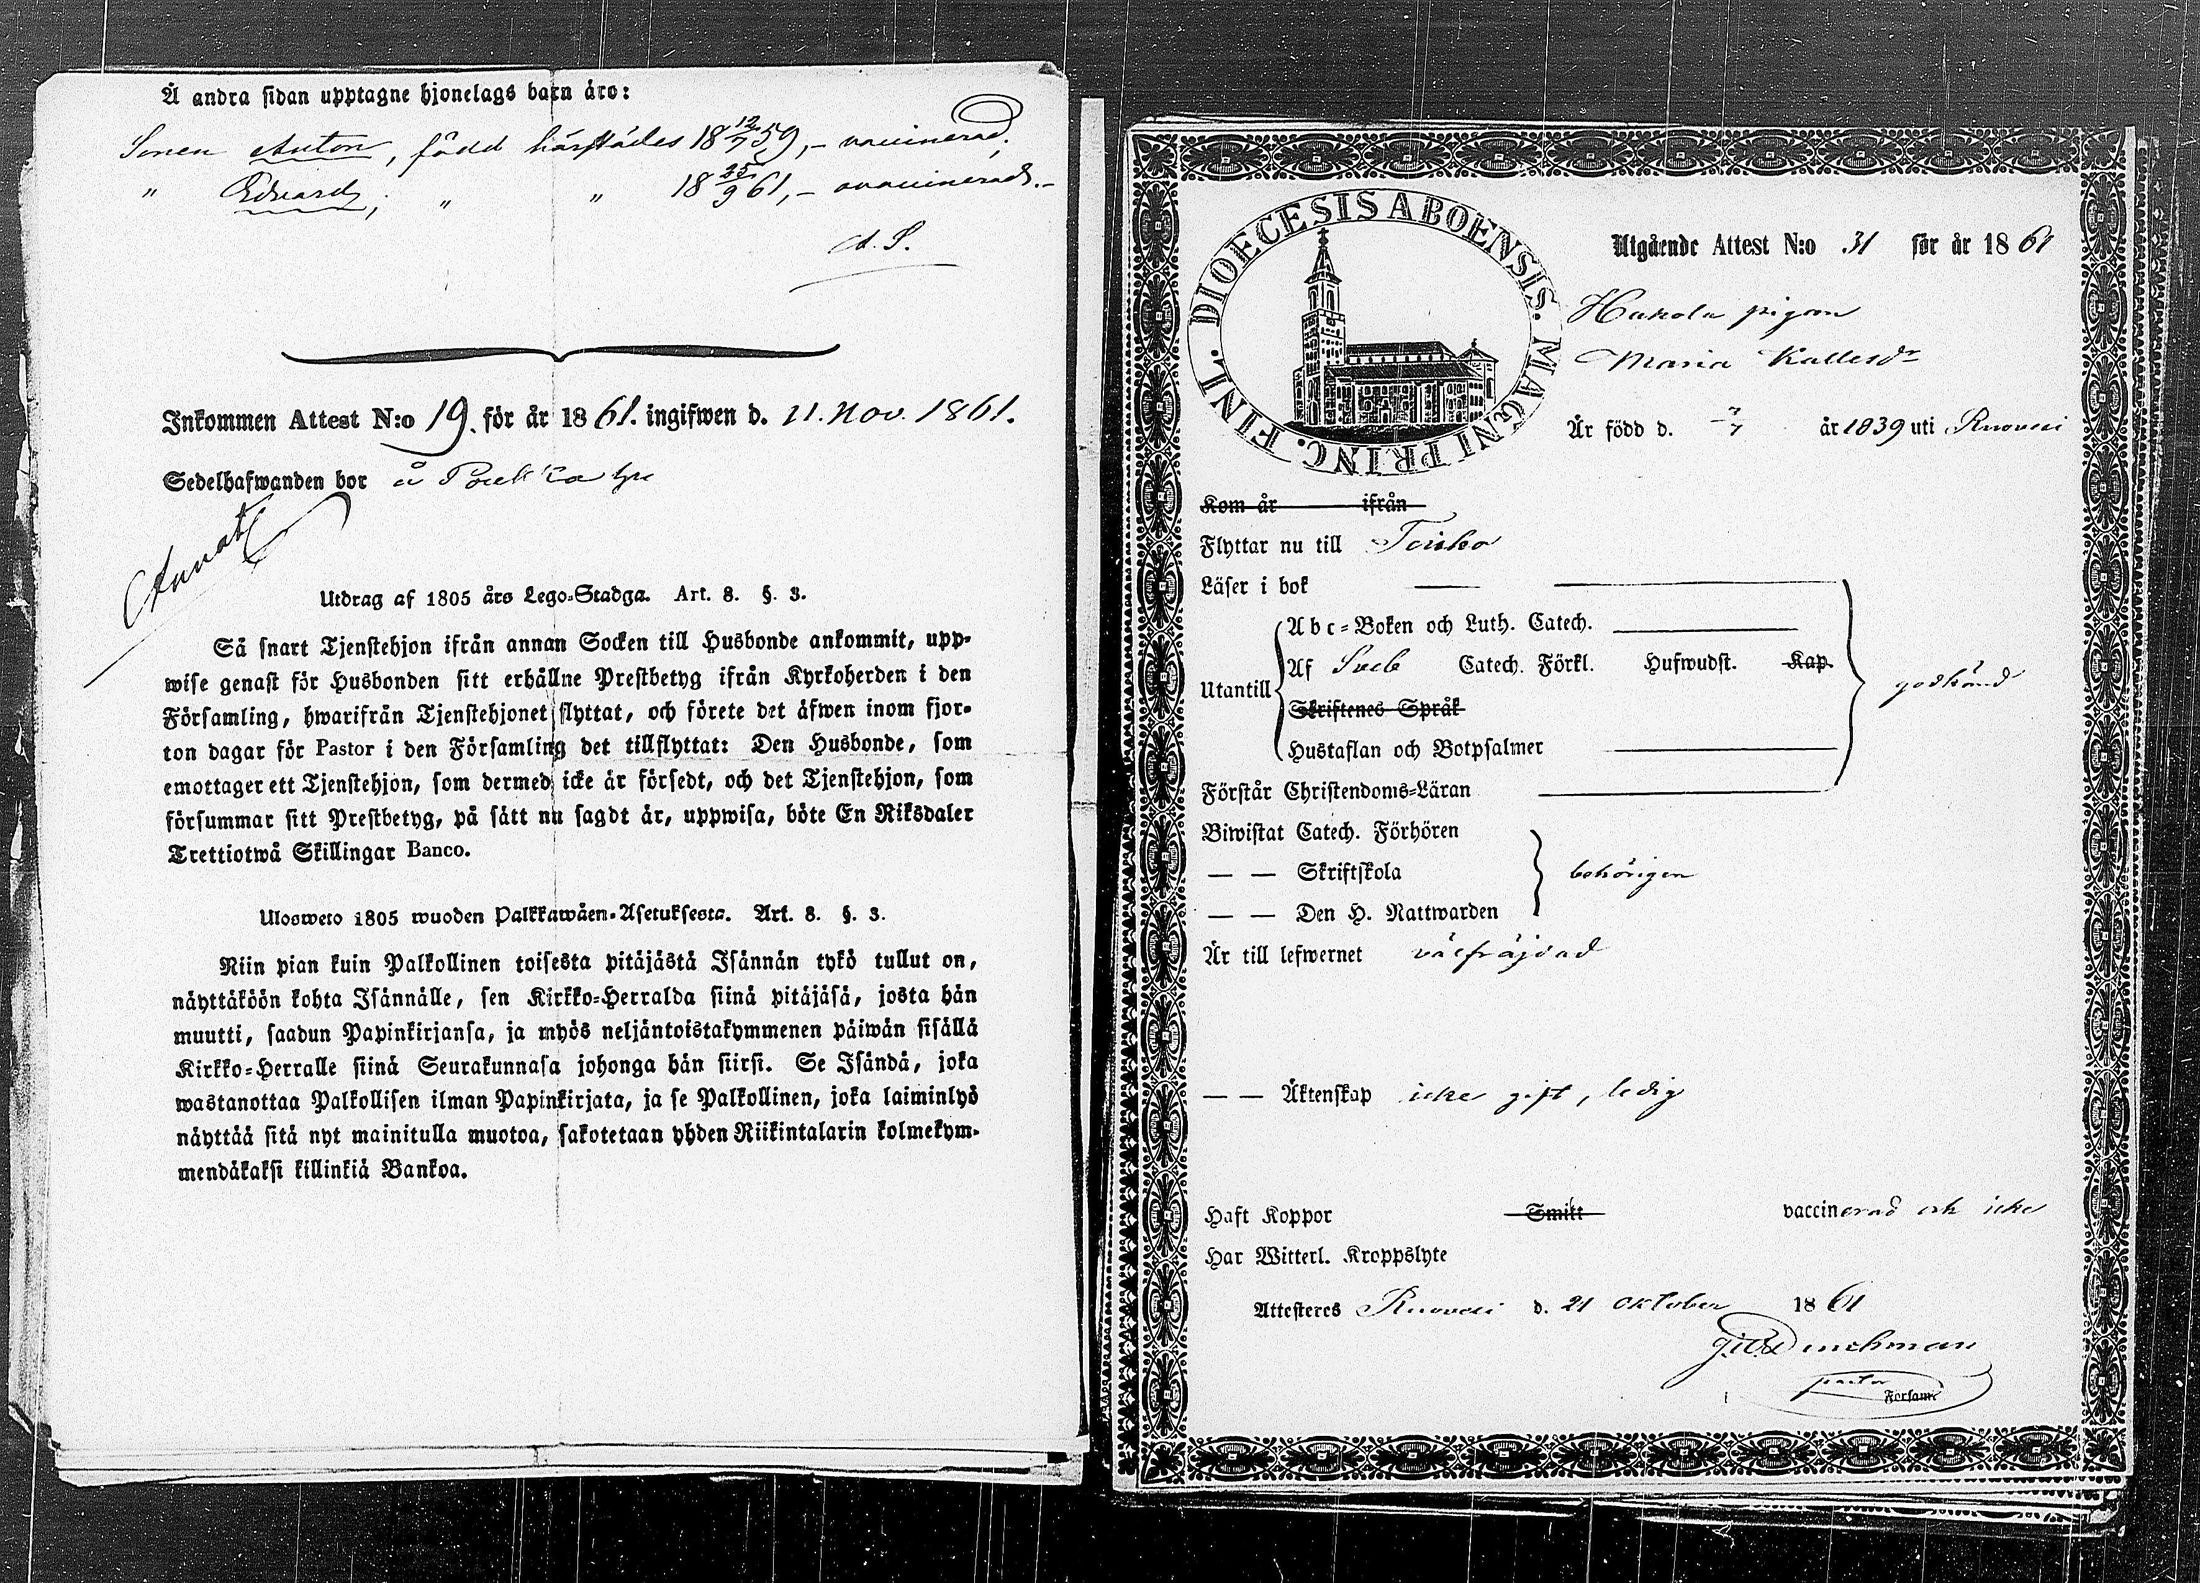 Å andra sidan upptagne hjonelags barn äro:
Sonen Anton, född härstädes 18 12/7 59, – vaccinerad;
" Edvard, " " 18 25/9 61, – ovaccinerad. –
A. S.
Inkommen Attest N:o 19. för år 1861. ingifwen d. 11. Nov. 1861.
Sedelhafwanden bor å
Utdrag af 1805 års Lego-Stadga. Art. 8. §. 3.
Så snart Tjenstehjon ifrån annan Socken till Husbonde ankommit, upp-
wise genast för Husbonden sitt erhållne Prestbetyg ifrån Kyrkoherden i den
Församling, hwarifrån Tjenstehjonet flyttat, och förete det äfwen inom fjor-
ton dagar för Pastor i den Församling det tillflyttat: Den Husbonde, som
emottager ett Tjenstehjon, som dermed icke är försedt, och det Tjenstehjon, som
försummar sitt Prestbetyg, på sätt nu sagdt är, uppwisa, böte En Riksdaler
Trettiotwå Skillingar Banco.
Ulosweto 1805 wuoden Palkkawäen-Asetuksesta. Art. 8. §. 3.
Niin pian kuin Palkollinen toisesta pitäjästä Isännän tykö tullut on,
näyttäköön kohta Isännälle, sen Kirkko-Herralda siinä pitäjäsä, josta hän
muutti, saadun Papinkirjansa, ja myös neljäntoistakymmenen päiwän sisällä
Kirkko-Herralle siinä Seurakunnasa johonga hän siirsi. Se Isändä, joka
wastanottaa Palkollisen ilman Papinkirjata, ja se Palkollinen, joka laiminlyö
näyttää sitä nyt mainitulla muotoa, sakotetaan yhden Riikintalarin kolmekym-
mendäkaksi killinkiä Bankoa.
DIOECESIS ABOENSIS. MAGNI PRINC. FINL.
Utgående Attest N:o 31 för år 1861
Hakola pigan
Maria Kallesdr
Är född d. 7/7 år 1839 uti Ruovesi
Kom år ifrån
Flyttar nu till Teisko
Läser i bok
Abc-Boken och Luth. Catech.
Utantill Af Sveb Catech. Förkl. Hufwudst. Kap.
godkänd
Skriftenes Språk
Hustaflan och Botpsalmer
Förstår Christendoms-Läran
Biwistat Catech. Förhören
— — Skriftskola behörigen
— — Den H. Nattwarden
Är till lefwernet välfräjdad
— — Äktenskap icke gift, ledig
Haft Koppor Smitt vaccinerad och icke
Har Witterl. Kroppslyte
Attesteres Ruovesi d. 21 oktober 1861
pastor
Forsaml.